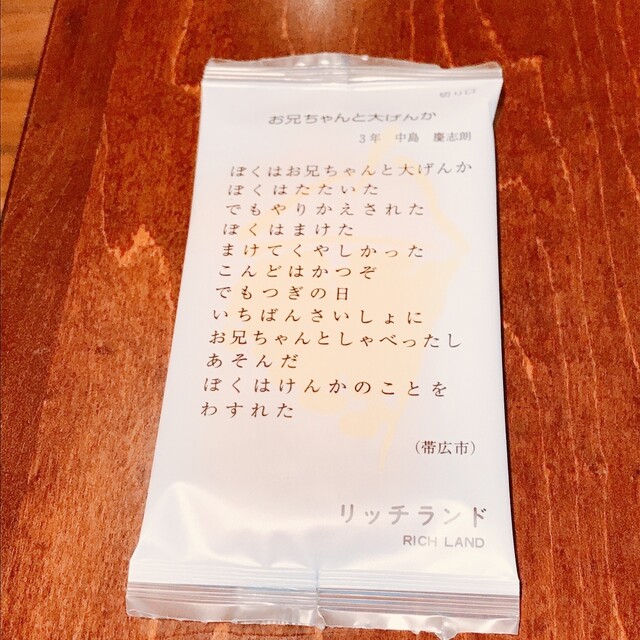 切り口
お兄ちゃんと大げんか
3年 中島 慶志朗
ぼくはお兄ちゃんと大げんか
ぼくはたたいた
でもやりかえされた
ぼくはまけた
まけてくやしかった
こんどはかつぞ
でもつぎの日
いちばんさいしょに
お兄ちゃんとしゃべったし
あそんだ
ぼくはけんかのことを
わすれた
(帯広市)
リッチランド
RICH LAND